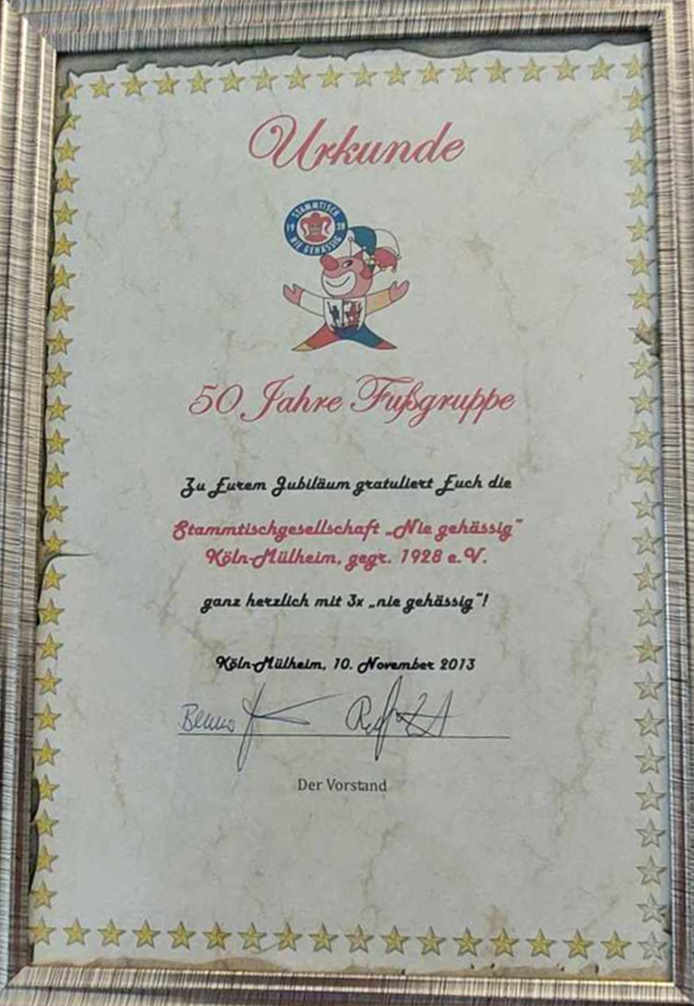 Urkunde
STAMMTISCH
19 28
NIE GEHÄSSIG
50 Jahre Fußgruppe
Zu Eurem Jubiläum gratuliert Euch die
Stammtischgesellschaft „Nie gehässig“
Köln-Mülheim, gegr. 1928 e.V.
ganz herzlich mit 3x „nie gehässig“!
Köln-Mülheim, 10. November 2013
Benno
Der Vorstand